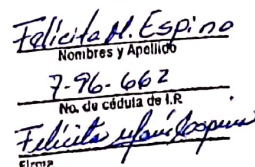 Felicita M. Espino
Nombres y Apellido
7-96-662
No. de cédula de I.P.
Felicita
Firma